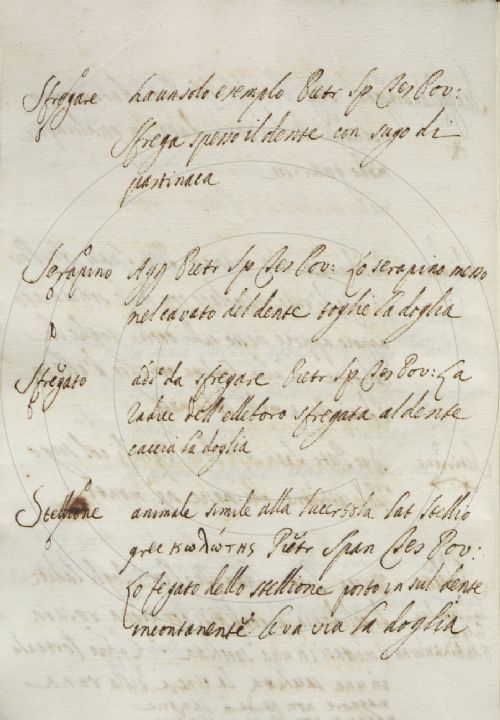 Sfregare ha un solo esempio Pietr Sp Tes Pov:
Sfrega spesso il dente con sugo di
pastinaca
Serapino Agg Pietr Sp Tes Pov: Lo serapino messo
nel cavato del dente toglie la doglia
Sfregato add da sfregare Pietr Sp Tes Pov: La
radice dell'elleboro sfregata al dente
caccia la doglia
Stellione animale simile alla lucertola lat stellio
grec κωλώτης Pietr Span Tes Pov:
Lo fegato dello stellione posto in sul dente
incontanente leva via la doglia